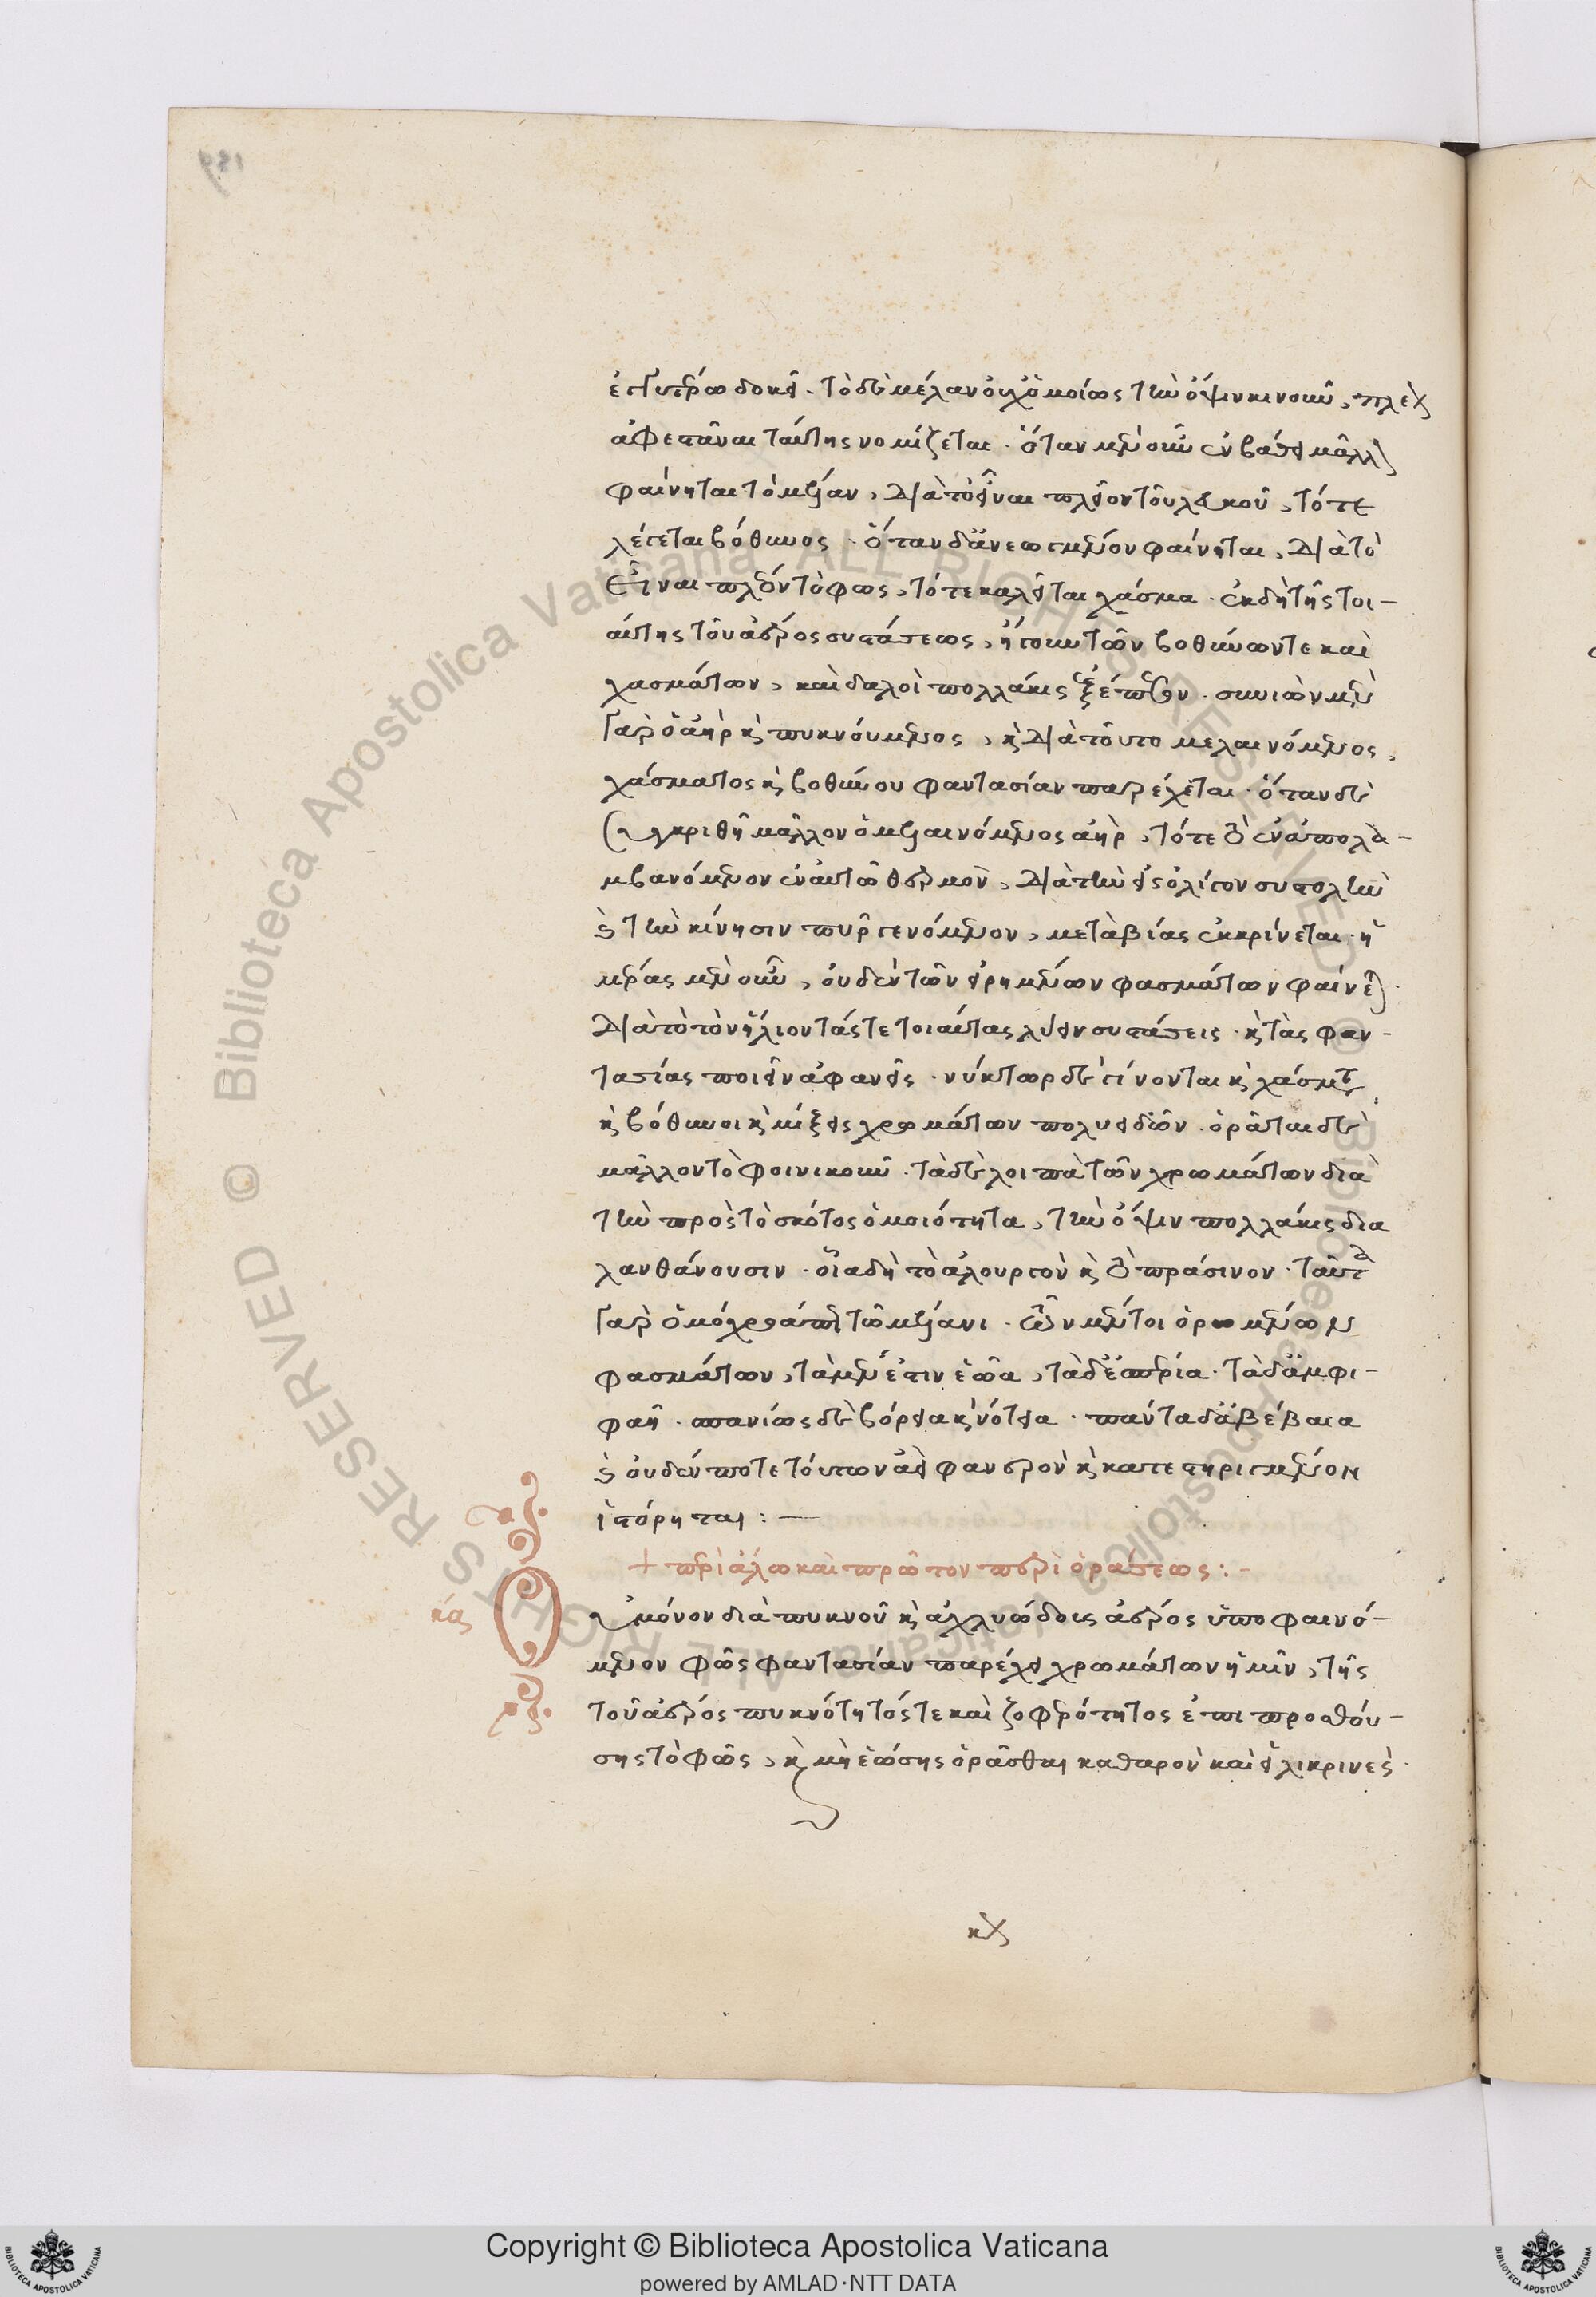 ἐγγυτέρω δοκεῖ. τὸ δὲ μέλαν οὐχ ὁμοίως τὴν ὄψιν κινοῦν, πλέον
ἀφεστάναι ταύτης νομίζεται. ὅταν μὲν οὖν ἐν βάθει μᾶλλον
φαίνηται τὸ μέλαν, διὰ τὸ εἶναι πλεῖον τοῦ λευκοῦ, τότε
λέγεται βόθυνος. ὅταν δ' ἀνεωγμένον φαίνηται, διὰ τὸ
εἶναι πλεῖον τὸ φῶς, τότε καλεῖται χάσμα. ἐκ δὴ τῆς τοι-
αύτης τοῦ ἀέρος συστάσεως, ἤγουν τῶν βοθύνων τε καὶ
χασμάτων, καὶ δαλοὶ πολλάκις ἐξέπεσον. συνιὼν μὲν
γὰρ ὁ ἀὴρ καὶ πυκνούμενος, καὶ διὰ τοῦτο μελαινόμενος,
χάσματος καὶ βοθύνου φαντασίαν παρέχεται. ὅταν δὲ
συγκριθῇ μᾶλλον ὁ μελαινόμενος ἀὴρ, τότε τὸ ἐναπολα-
μβανόμενον ἐν αὐτῷ θερμὸν, διὰ τὴν εἰς ὀλίγον συστολὴν
καὶ τὴν κίνησιν πῦρ γενόμενον, μετὰ βίας ἐκκρίνεται. ἡ
μέρας μὲν οὖν, οὐδὲν τῶν εἰρημένων φασμάτων φαίνεται.
διὰ τὸ τὸν ἥλιον τάς τε τοιαύτας λύειν συστάσεις. καὶ τὰς φαν-
τασίας ποιεῖν ἀφανεῖς. νύκτωρ δὲ γίνονται καὶ χάσματα,
καὶ βόθυνοι καὶ μίξεις χρωμάτων πολυειδῶν. ὁρᾶται δὲ
μᾶλλον τὸ φοινικοῦν. τὰ δὲ λοιπὰ τῶν χρωμάτων διὰ
τὴν πρὸς τὸ σκότος ὁμοιότητα, τὴν ὄψιν πολλάκις δια
λανθάνουσιν. οἷα δὴ τὸ ἁλουργὸν καὶ τὸ πράσινον. ταῦτα
γὰρ ὁμόχροά ἐστι τῷ μέλανι. ὧν μέντοι ὁρωμένων
φασμάτων, τὰ μέν ἐστιν ἑῶα, τὰ δ' ἑσπέρια. τὰ δ' ἀμφι-
φαῆ. σπανίως δὲ βόρεια καὶ νότια. πάντα δ' ἀβέβαια
καὶ οὐδέν ποτε τούτων ἀεὶ φανερὸν καὶ κατεστηριγμένον
ἱστόρηται:—
+ περὶ ἅλω καὶ πρῶτον περὶ ὁράσεως:-
κα΄
Οὐ μόνον διὰ πυκνοῦ καὶ ἀχλυώδους ἀέρος ὑποφαινό-
μενον φῶς φαντασίαν παρέχει χρωμάτων ἡμῖν, τῆς
τοῦ ἀέρος πυκνότητός τε καὶ ζοφερότητος ἐπιπροσθού-
σης τὸ φῶς, καὶ μὴ ἐώσης ὁρᾶσθαι καθαρὸν καὶ εἰλικρινές.
Copyright © Biblioteca Apostolica Vaticana
powered by AMLAD·NTT DATA